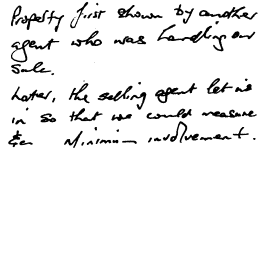 Property first shown by another
agent who was handling our
sale.
Later, the selling agent let us
in so that we could measure
&c. Minimum involvement.